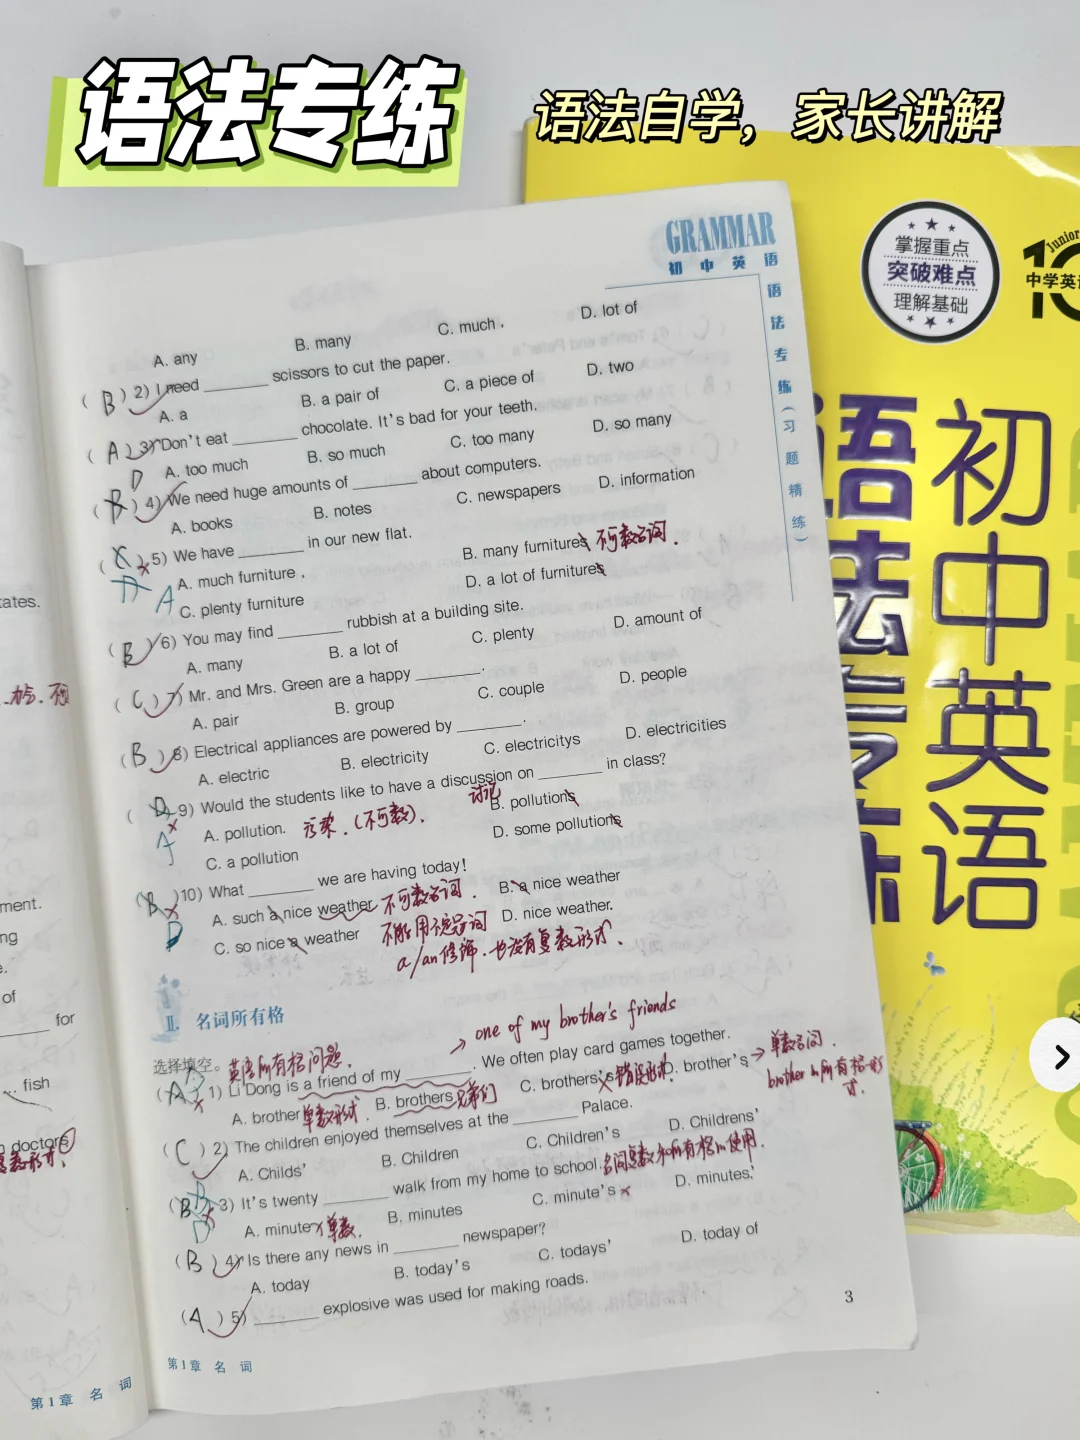 语法专练
语法自学，家长讲解
GRAMMAR
初中英语
语法专练（习题精练）
A. any B. many C. much . D. lot of
( B ) 2) I need ______ scissors to cut the paper.
A. a B. a pair of C. a piece of D. two
( A ) 3) Don't eat ______ chocolate. It's bad for your teeth.
A. too much B. so much C. too many D. so many
D
( B ) 4) We need huge amounts of ______ about computers.
A. books B. notes C. newspapers D. information
( ) 5) We have ______ in our new flat.
A
A. much furniture . B. many furnitures 不可数名词.
C. plenty furniture D. a lot of furnitures
( B ) 6) You may find ______ rubbish at a building site.
A. many B. a lot of C. plenty D. amount of
( C ) 7) Mr. and Mrs. Green are a happy ______.
A. pair B. group C. couple D. people
( B ) 8) Electrical appliances are powered by ______.
A. electric B. electricity C. electricitys D. electricities
( D 9) Would the students like to have a discussion on ______ in class?
讨论
A
A. pollution. 污染.(不可数). B. pollutions
C. a pollution D. some pollutions
( B )10) What ______ we are having today!
A. such a nice weather 不可数名词. B. a nice weather
D
C. so nice a weather D. nice weather.
不能用不定冠词
a/an修饰.也没有复数形式.
II. 名词所有格
one of my brother's friends
选择填空。英语所有格问题.
( A 1) Li Dong is a friend of my ______. We often play card games together.
A. brother 单数形式. B. brothers 兄弟们 C. brothers's 错误形式 D. brother's → 单数名词.
brother的所有格形式.
( C ) 2) The children enjoyed themselves at the ______ Palace.
A. Childs' B. Children C. Children's D. Childrens'
( B 3) It's twenty ______ walk from my home to school. 名词复数和所有格的使用.
D
A. minute 单数. B. minutes C. minute's x D. minutes'
( B ) 4) Is there any news in ______ newspaper?
A. today B. today's C. todays' D. today of
( A ) 5) ______ explosive was used for making roads.
3
第1章 名词
ates.
ment.
ng
e.
of
for
fish
doctors
复数形式.
第1章 名词
掌握重点
突破难点
理解基础
Junior
10
中学英语
初中英语
语法专练